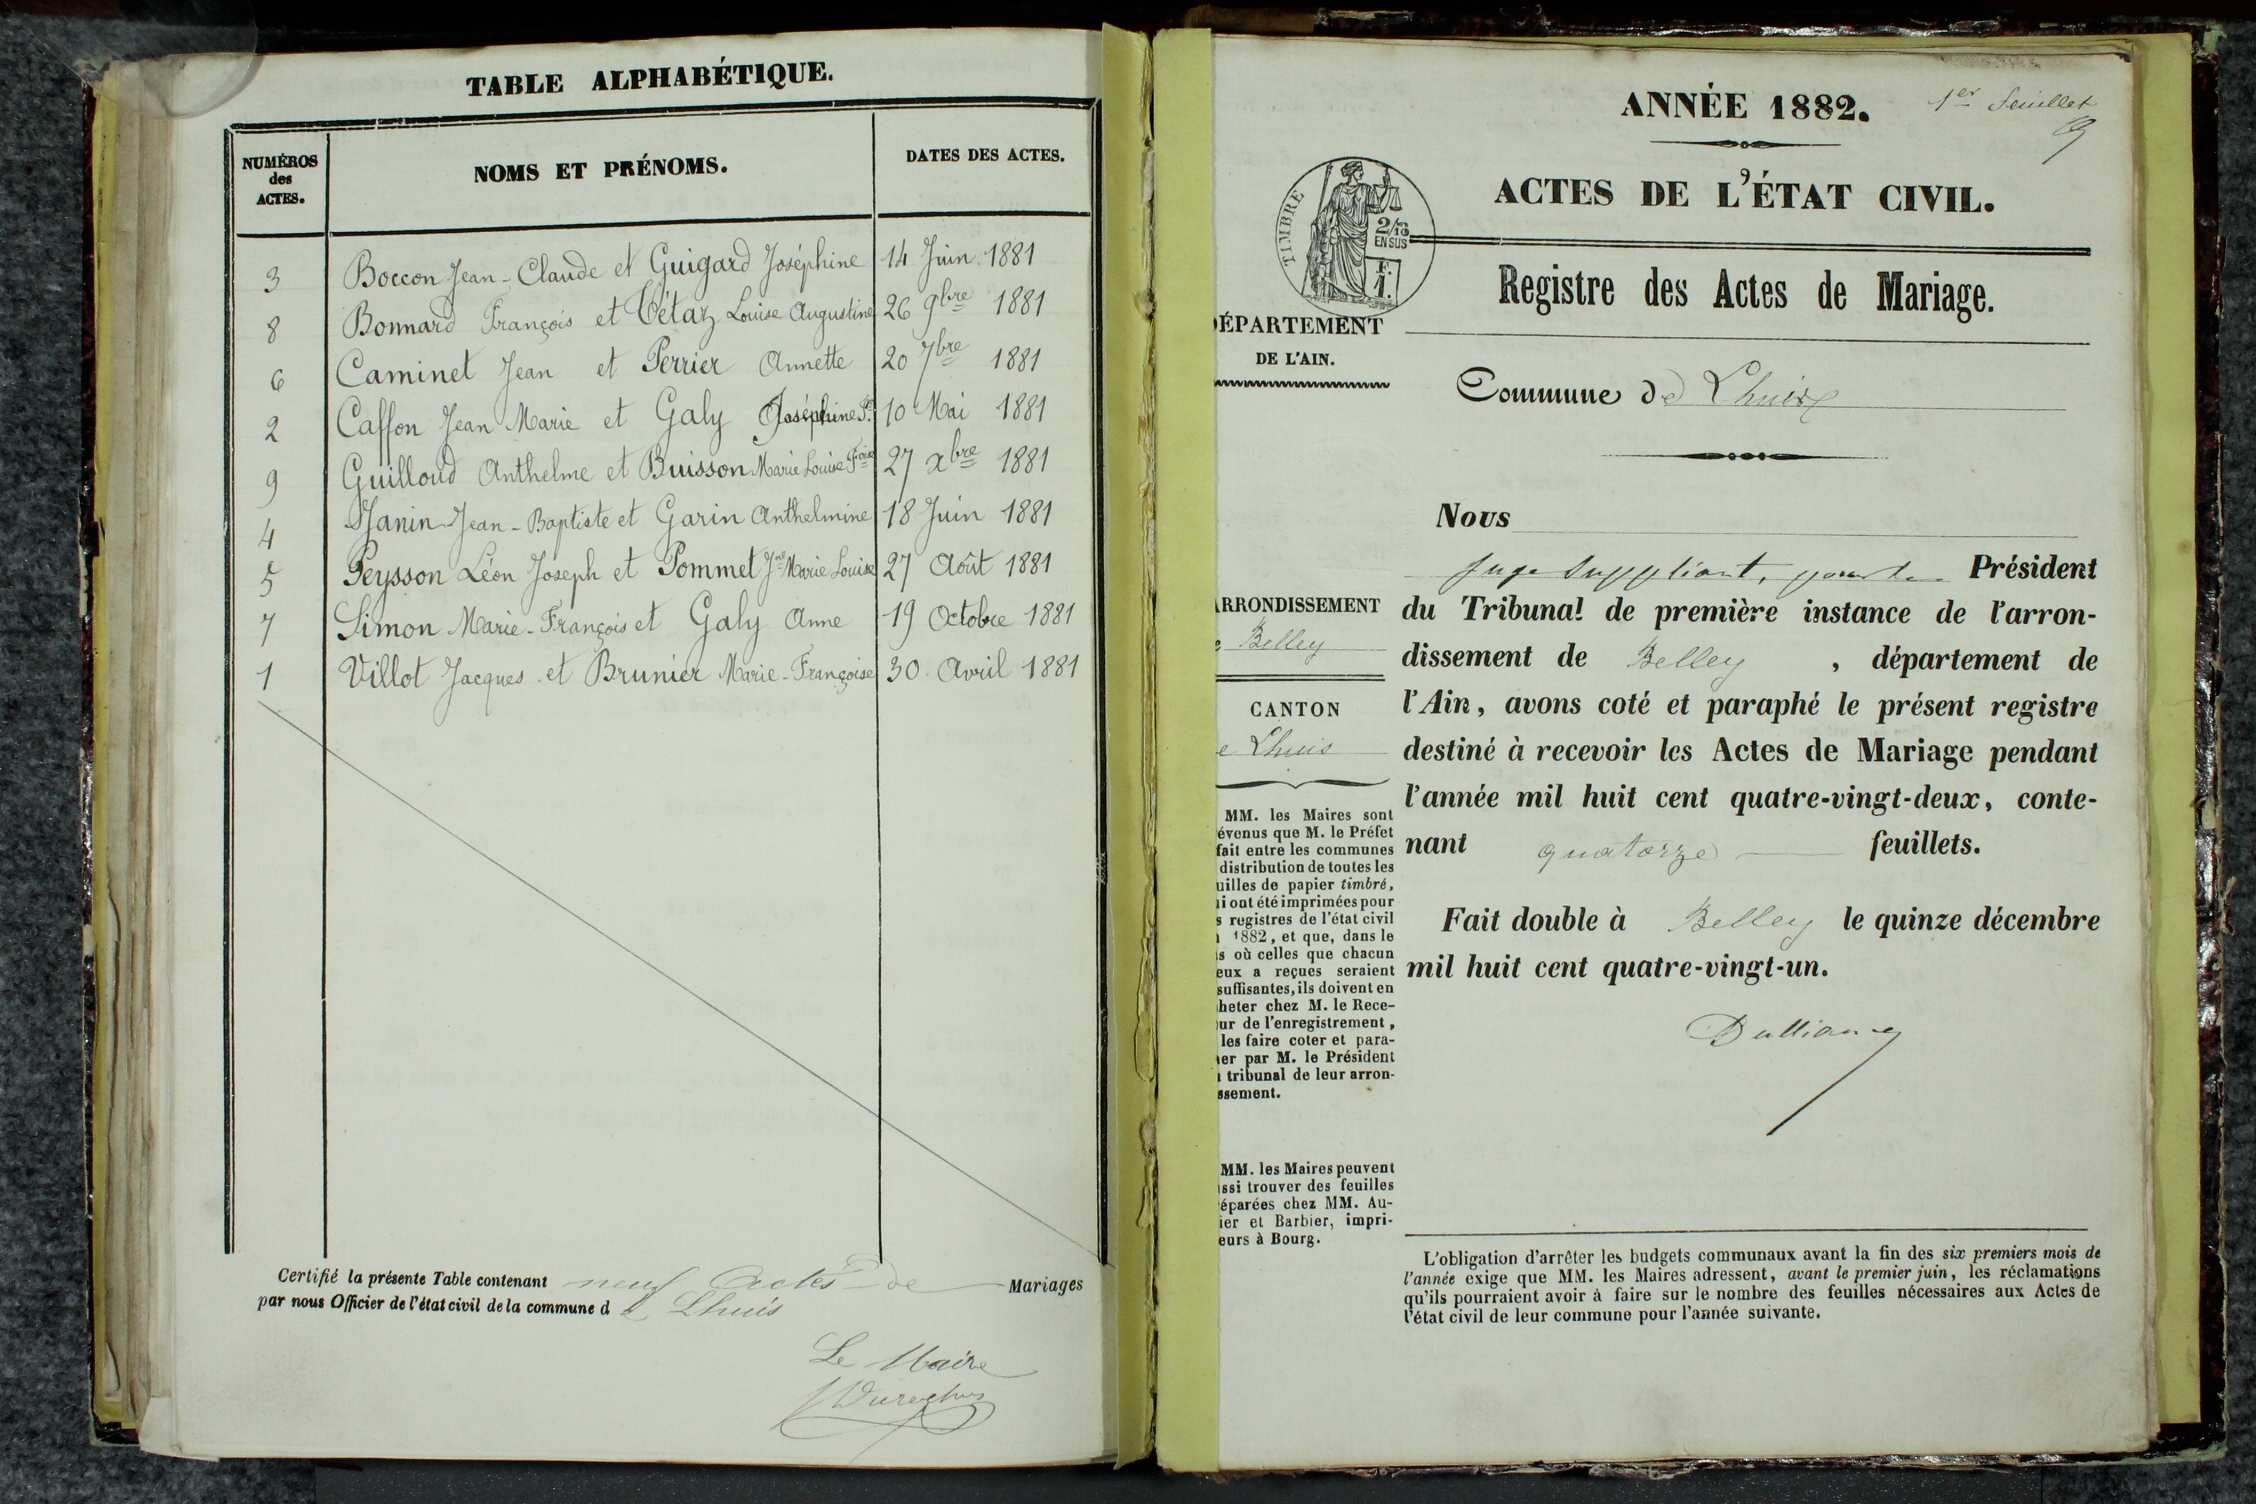 TABLE ALPHABÉTIQUE.
NUMÉROS des ACTES. NOMS ET PRÉNOMS. DATES DES ACTES.
3 Boccon Jean-Claude et Guigard Joséphine 14 Juin 1881
8 Bonnard François et Tétaz Louise Augustine 26 9bre 1881
6 Caminet Jean et Perrier Annette 20 7bre 1881
2 Caffon Jean Marie et Galy Joséphine 10 Mai 1881
9 Guilloud Anthelme et Buisson Marie Louise Foise 27 Xbre 1881
4 Janin Jean-Baptiste et Garin Anthelmine 18 Juin 1881
5 Peysson Léon Joseph et Pommet Jne Marie Louise 27 Août 1881
7 Simon Marie-François et Galy Anne 19 Octobre 1881
1 Villot Jacques et Brunier Marie-Françoise 30 Avril 1881
Certifié la présente Table contenant neuf Actes de Mariages
par nous Officier de l'état civil de la commune de Lhuis
Le Maire
1er feuillet
ANNÉE 1882.
ACTES DE L'ÉTAT CIVIL.
TIMBRE
2/10
EN SUS
F.
1.
Registre des Actes de Mariage.
DÉPARTEMENT
DE L'AIN.
Commune de Lhuis
Nous
Juge Suppléant, pour le Président
du Tribunal de première instance de l'arron-
dissement de Belley, département de
l'Ain, avons coté et paraphé le présent registre
destiné à recevoir les Actes de Mariage pendant
l'année mil huit cent quatre-vingt-deux, conte-
nant quatorze feuillets.
Fait double à Belley le quinze décembre
mil huit cent quatre-vingt-un.
ARRONDISSEMENT
e Belley
CANTON
e Lhuis
MM. les Maires sont
évenus que M. le Préfet
fait entre les communes
distribution de toutes les
uilles de papier timbré,
i ont été imprimées pour
s registres de l'état civil
1882, et que, dans le
s où celles que chacun
eux a reçues seraient
suffisantes, ils doivent en
heter chez M. le Rece-
ur de l'enregistrement,
les faire coter et para-
er par M. le Président
tribunal de leur arron-
ssement.
MM. les Maires peuvent
ssi trouver des feuilles
éparées chez MM. Au-
ier et Barbier, impri-
eurs à Bourg.
L'obligation d'arrêter les budgets communaux avant la fin des six premiers mois de
l'année exige que MM. les Maires adressent, avant le premier juin, les réclamations
qu'ils pourraient avoir à faire sur le nombre des feuilles nécessaires aux Actes de
l'état civil de leur commune pour l'année suivante.